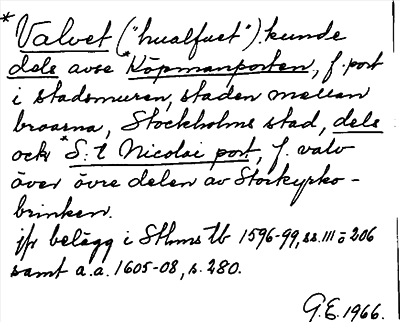 *Valvet ("hualfuet") kunde
dels avse *Köpmanporten, f. port
i stadsmuren, staden mellan
broarna, Stockholms stad, dels
ock *S:t Nicolai port, f. valv
över övre delen av Storkyrko-
brinken.
jfr belägg i Sthms tb 1596-99, ss. 111 o 206
samt a.a. 1605-08, s. 280.
G.E. 1966.